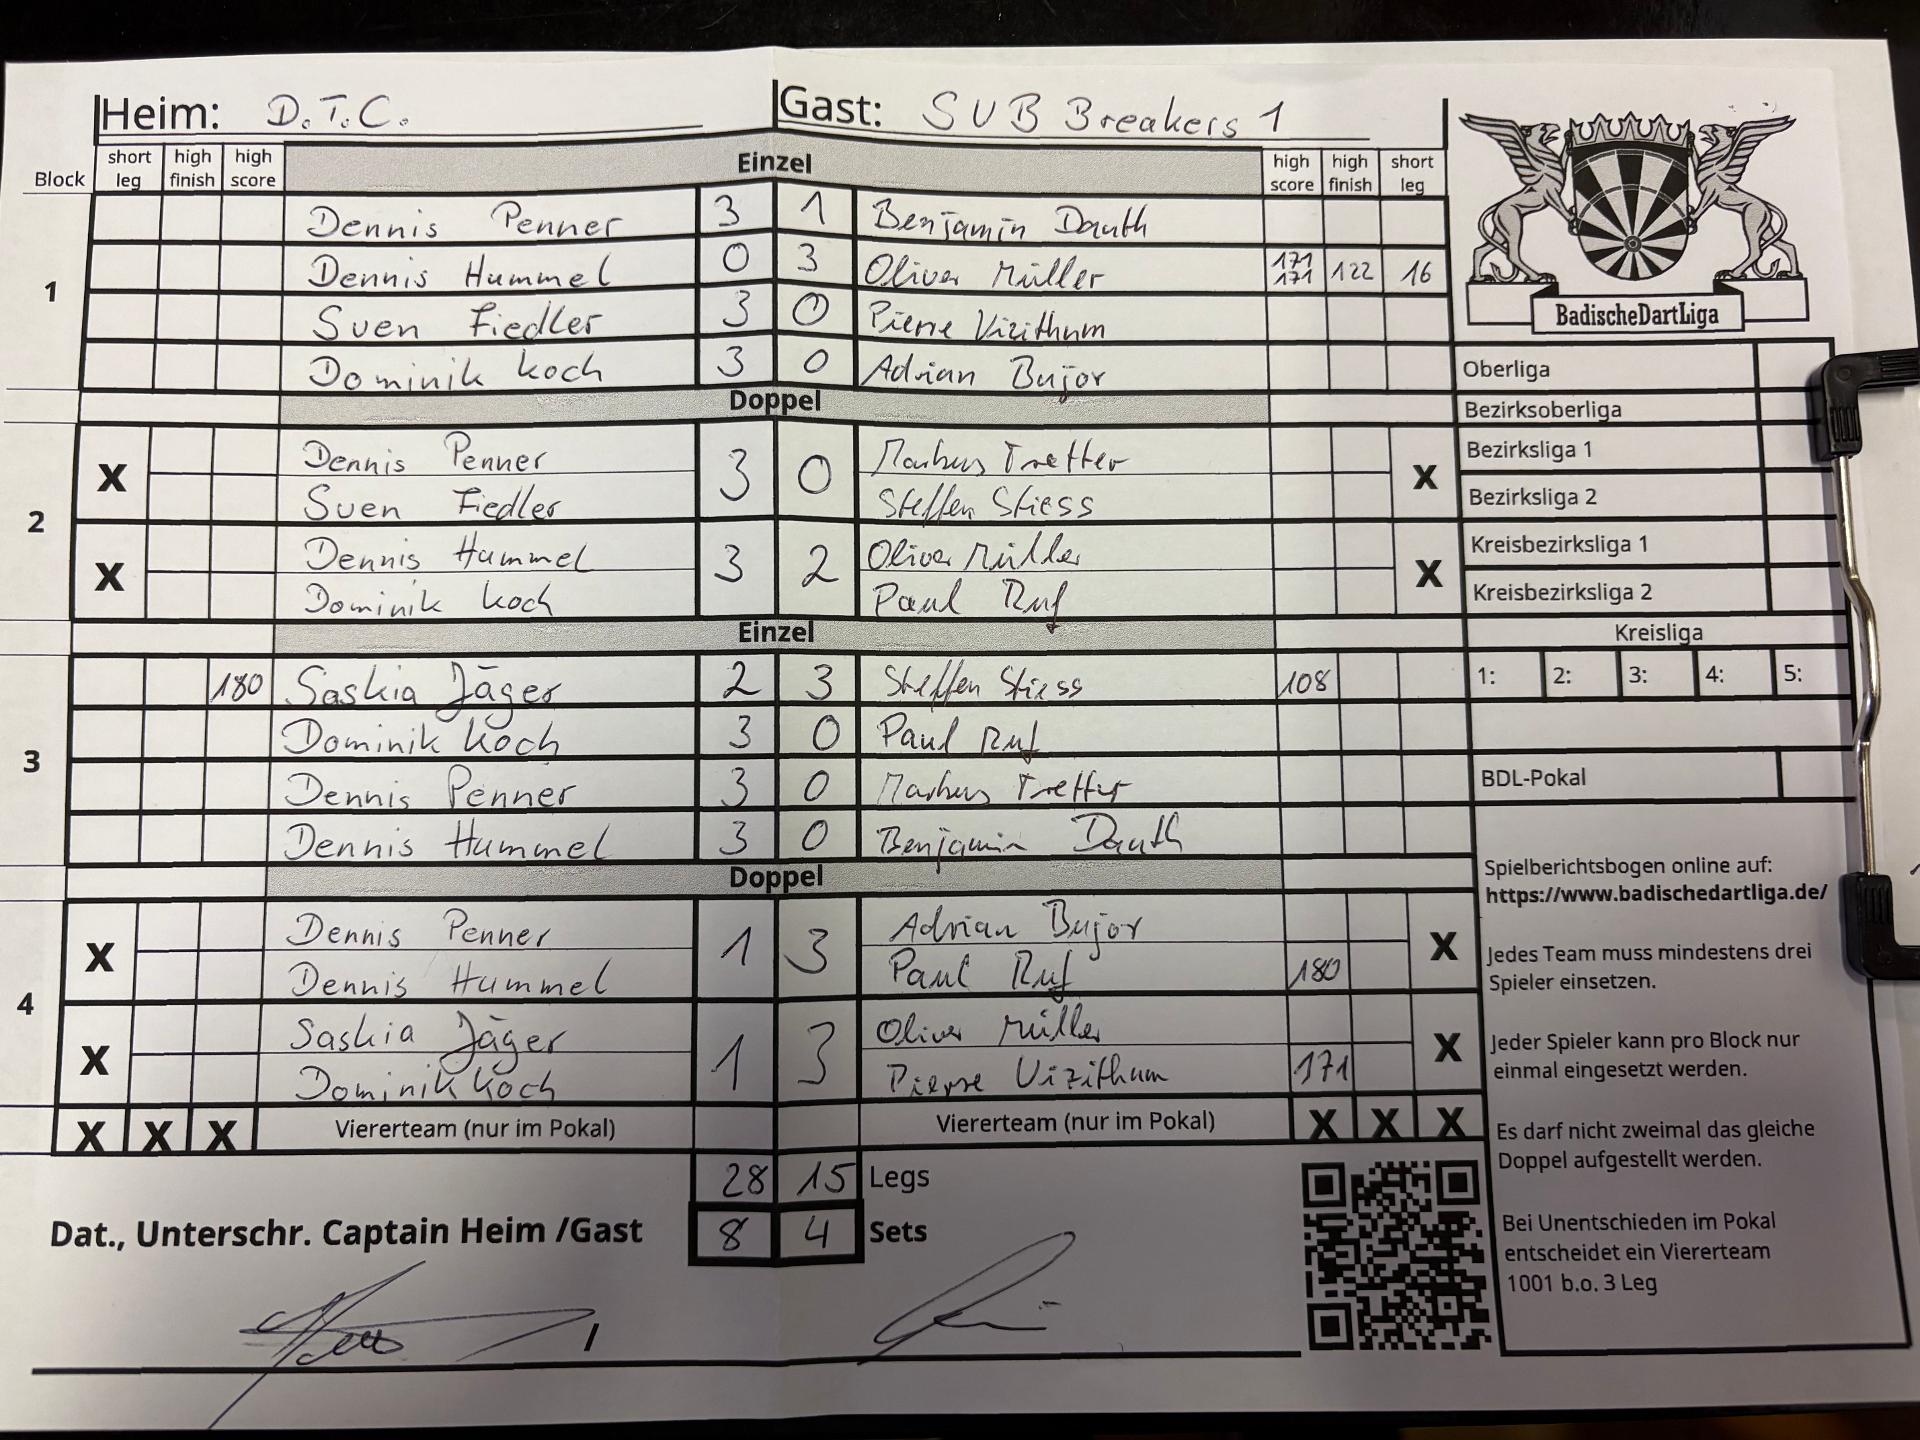 Heim: D.T.C. Gast: SVB Breakers 1
Block short leg high finish high score Einzel high score high finish short leg
1
Dennis Penner 3 1 Benjamin Dauth
Dennis Hummel 0 3 Oliver Müller 171 171 122 16
Sven Fiedler 3 0 Pierre Vizithum
Dominik Koch 3 0 Adrian Bujor
Doppel
2
X Dennis Penner 3 0 Markus Tretter X
Sven Fiedler Steffen Stiess
X Dennis Hummel 3 2 Oliver Müller X
Dominik Koch Paul Ruf
Einzel
3
180 Saskia Jäger 2 3 Steffen Stiess 108
Dominik Koch 3 0 Paul Ruf
Dennis Penner 3 0 Markus Tretter
Dennis Hummel 3 0 Benjamin Dauth
Doppel
4
X Dennis Penner 1 3 Adrian Bujor X
Dennis Hummel Paul Ruf 180
X Saskia Jäger 1 3 Oliver Müller X
Dominik Koch Pierre Vizithum 171
X X X Viererteam (nur im Pokal) Viererteam (nur im Pokal) X X X
28 15 Legs
Dat., Unterschr. Captain Heim /Gast 8 4 Sets
/
BadischeDartLiga
Oberliga
Bezirksoberliga
Bezirksliga 1
Bezirksliga 2
Kreisbezirksliga 1
Kreisbezirksliga 2
Kreisliga
1: 2: 3: 4: 5:
BDL-Pokal
Spielberichtsbogen online auf:
https://www.badischedartliga.de/
Jedes Team muss mindestens drei
Spieler einsetzen.
Jeder Spieler kann pro Block nur
einmal eingesetzt werden.
Es darf nicht zweimal das gleiche
Doppel aufgestellt werden.
Bei Unentschieden im Pokal
entscheidet ein Viererteam
1001 b.o. 3 Leg